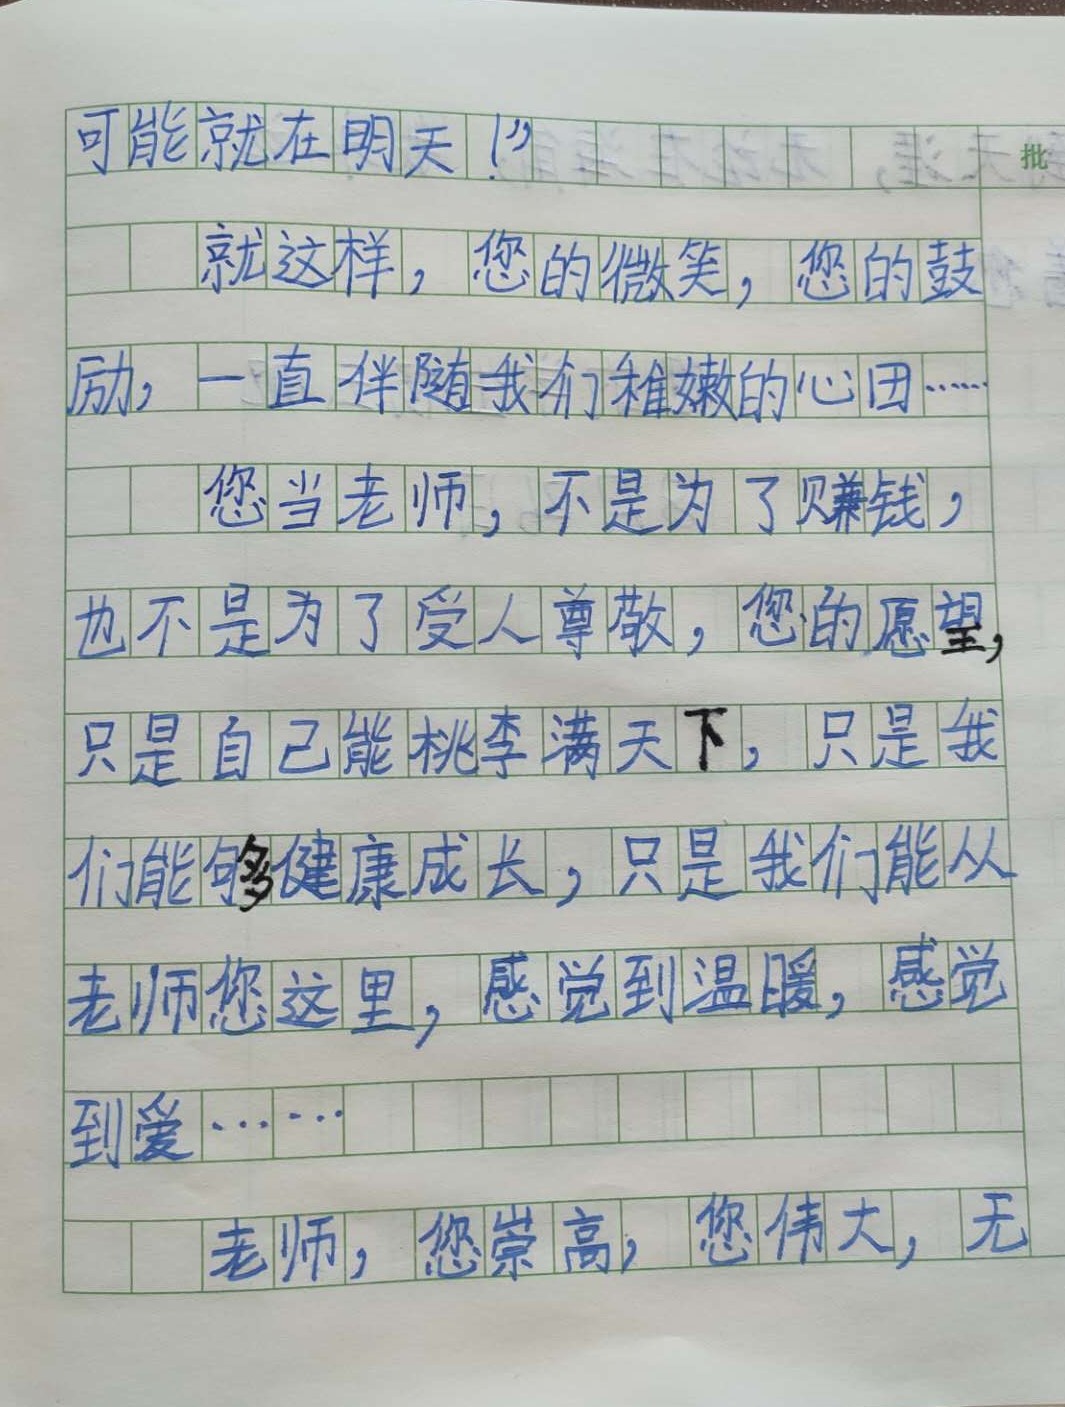 可能就在明天！”
批
就这样，您的微笑，您的鼓
励，一直伴随我们稚嫩的心田……
您当老师，不是为了赚钱，
也不是为了受人尊敬，您的愿望，
只是自己能桃李满天下，只是我
们能够健康成长，只是我们能从
老师您这里，感觉到温暖，感觉
到爱……
老师，您崇高，您伟大，无